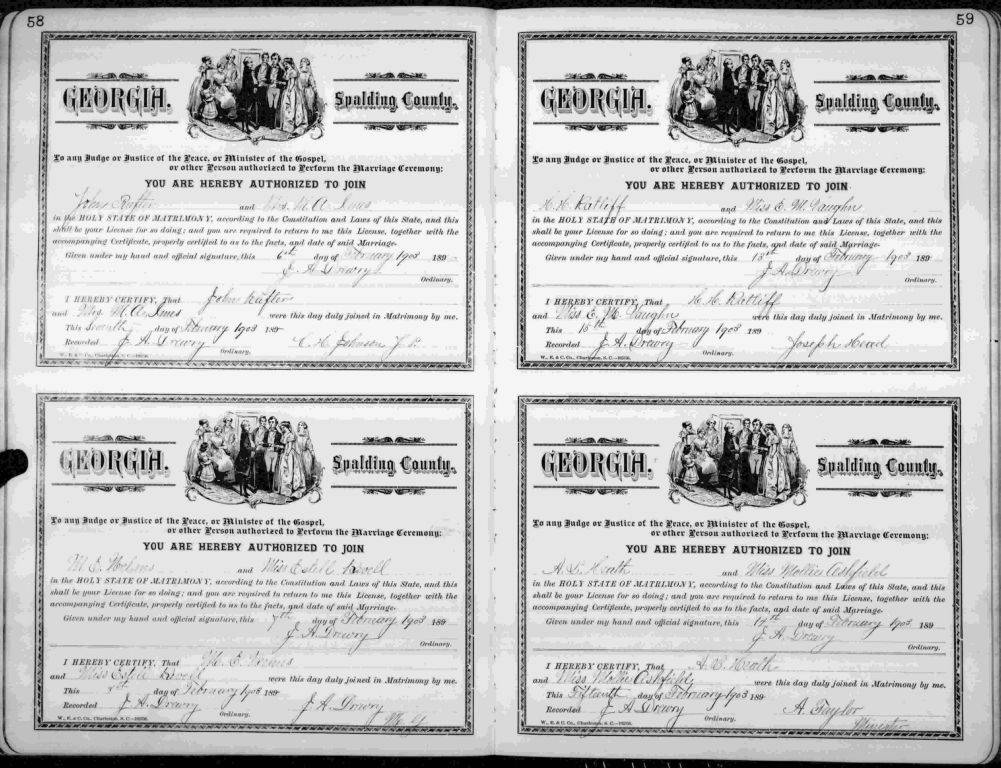 58
GEORGIA. Spalding County.
To any Judge or Justice of the Peace, or Minister of the Gospel,
or other Person authorized to Perform the Marriage Ceremony:
YOU ARE HEREBY AUTHORIZED TO JOIN
John Rafter and Mrs. M. A.
in the HOLY STATE OF MATRIMONY, according to the Constitution and Laws of this State, and this
shall be your License for so doing; and you are required to return to me this License, together with the
accompanying Certificate, properly certified to as to the facts, and date of said Marriage.
Given under my hand and official signature, this 6th day of February 1903 189
J. A. Drewry
Ordinary.
I HEREBY CERTIFY, That John Rafter
and Mrs. M. A. were this day duly joined in Matrimony by me.
This Seventh day of February 1903 189
Recorded J. A. Drewry C. H. Johnson J. P.
Ordinary.
W., E. & C. Co., Charleston, S. C.
GEORGIA. Spalding County.
To any Judge or Justice of the Peace, or Minister of the Gospel,
or other Person authorized to Perform the Marriage Ceremony:
YOU ARE HEREBY AUTHORIZED TO JOIN
M. E. and Miss Estell
in the HOLY STATE OF MATRIMONY, according to the Constitution and Laws of this State, and this
shall be your License for so doing; and you are required to return to me this License, together with the
accompanying Certificate, properly certified to as to the facts, and date of said Marriage.
Given under my hand and official signature, this day of February 1903 189
J. A. Drewry
Ordinary.
I HEREBY CERTIFY, That M. E.
and Miss were this day duly joined in Matrimony by me.
This day of February 1903 189
Recorded J. A. Drewry J. A. Drewry
Ordinary.
W., E. & C. Co., Charleston, S. C.
59
GEORGIA. Spalding County.
To any Judge or Justice of the Peace, or Minister of the Gospel,
or other Person authorized to Perform the Marriage Ceremony:
YOU ARE HEREBY AUTHORIZED TO JOIN
H. H. Ratliff and Miss E. M. Vaughn
in the HOLY STATE OF MATRIMONY, according to the Constitution and Laws of this State, and this
shall be your License for so doing; and you are required to return to me this License, together with the
accompanying Certificate, properly certified to as to the facts, and date of said Marriage.
Given under my hand and official signature, this 13th day of February 1903 189
J. A. Drewry
Ordinary.
I HEREBY CERTIFY, That H. H. Ratliff
and Miss E. M. Vaughn were this day duly joined in Matrimony by me.
This 15th day of February 1903 189
Recorded J. A. Drewry Joseph Head
Ordinary.
W., E. & C. Co., Charleston, S. C.
GEORGIA. Spalding County.
To any Judge or Justice of the Peace, or Minister of the Gospel,
or other Person authorized to Perform the Marriage Ceremony:
YOU ARE HEREBY AUTHORIZED TO JOIN
A. S. Heath and Miss Mollie Ashfield
in the HOLY STATE OF MATRIMONY, according to the Constitution and Laws of this State, and this
shall be your License for so doing; and you are required to return to me this License, together with the
accompanying Certificate, properly certified to as to the facts, and date of said Marriage.
Given under my hand and official signature, this 14th day of February 1903 189
J. A. Drewry
Ordinary.
I HEREBY CERTIFY, That A. S. Heath
and Miss Mollie Ashfield were this day duly joined in Matrimony by me.
This day of February 1903 189
Recorded J. A. Drewry A. Taylor
Ordinary. Minister
W., E. & C. Co., Charleston, S. C.